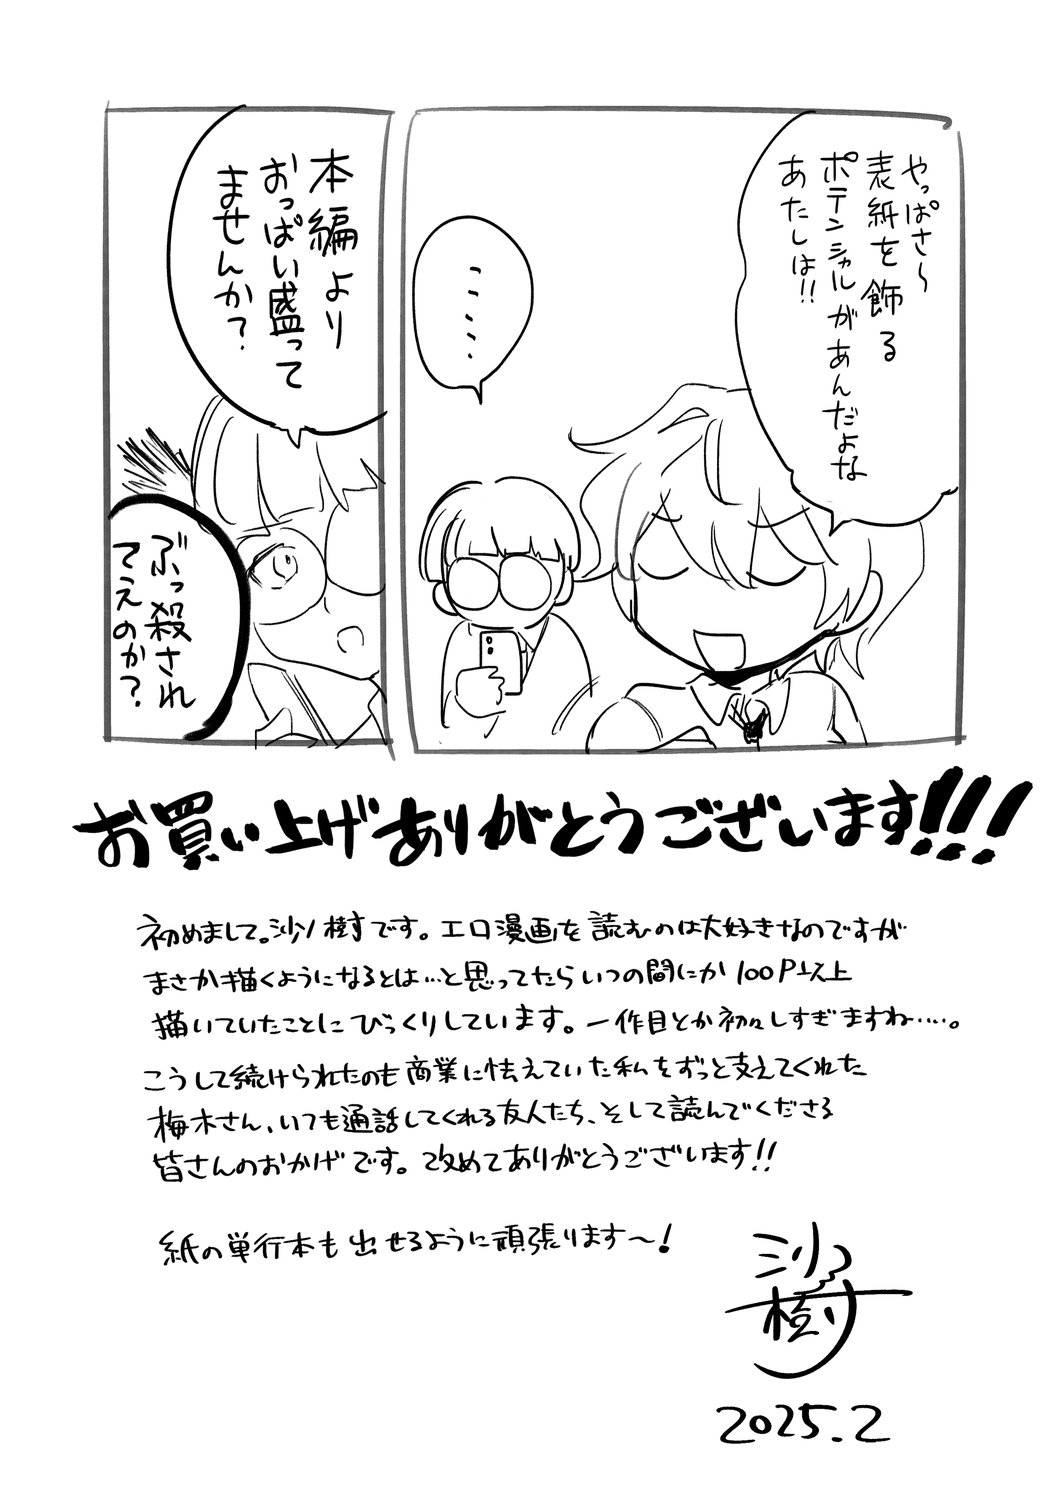 やっぱさ～
表紙を飾る
ポテンシャルがあんだよな
あたしは!!
……
本編より
おっぱい盛って
ませんか?
ぶっ殺され
てえのか?
お買い上げありがとうございます!!!
初めまして。沙樹です。エロ漫画を読むのは大好きなのですが
まさか描くようになるとは…と思ってたらいつの間にか100P以上
描いていたことにびっくりしています。一作目とか初々しすぎますね….。
こうして続けられたのも商業に怯えていた私をずっと支えてくれた
梅木さん、いつも通話してくれる友人たち、そして読んでくださる
皆さんのおかげです。改めてありがとうございます!!
紙の単行本も出せるように頑張ります〜!
沙樹
2025.2